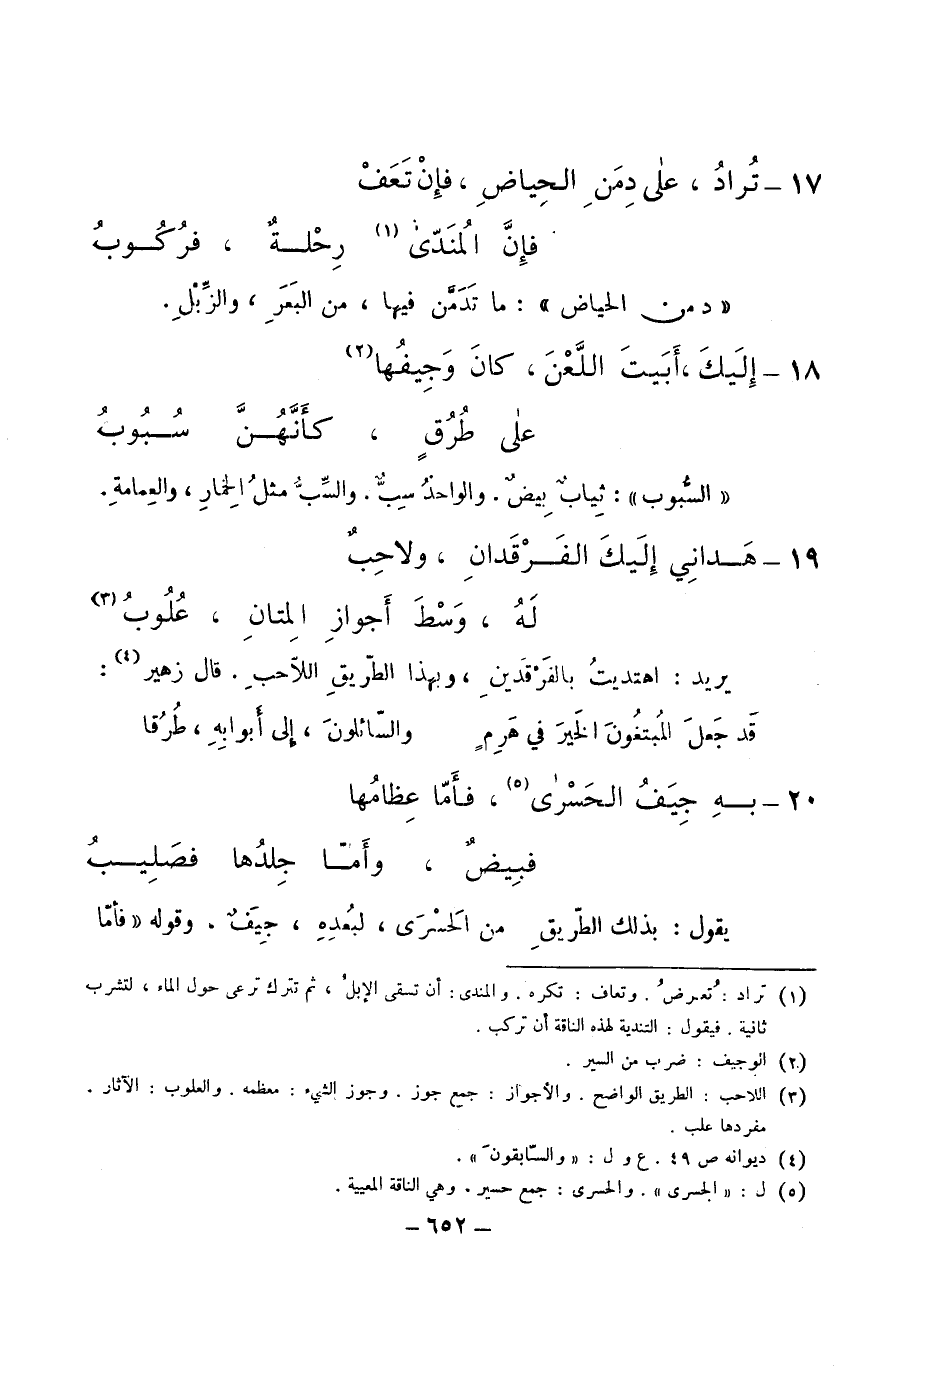 ١٧ – تُرادُ ، على دِمَنِ الحِياضِ ، فإنْ تَعَفْ
فإنَّ المُنَدّىٰ (١) رِحْلـةٌ ، فرُكُـوبُ
« دمن الحياض » : ما تَدَمَّن فيها ، من البَعَرِ ، والزِّبْلِ .
١٨ – إلَيكَ ، أَبَيتَ اللَّعْنَ ، كانَ وَجِيفُها (٢)
على طُرُقٍ ، كأنَّهُـنَّ سُـبُوبُ
« السُّبوب » : ثيابٌ بِيضٌ . والواحدُ سِبٌّ . والسِّبُّ مثلُ الخِمارِ ، والعِمامةِ .
١٩ – هَـدانِي إلَيكَ الفَـرْقَدانِ ، ولاحِبٌ
لَهُ ، وَسْطَ أجوازِ المِتانِ ، عُلُوبُ (٣)
يريد : اهتديتُ بالفَرْقدينِ ، وبهذا الطّريقِ اللّاحبِ . قال زهير (٤) :
قَد جَعلَ المُبتغُونَ الخَيرَ في هَرِمٍ والسّائلونَ ، إلى أبوابِهِ ، طُرُقا
٢٠ – بـهِ جِيَفُ الحَسْرٰى (٥) ، فأمّا عِظامُها
فبِيضٌ ، وأمّـا جِلدُها فصَلِيـبُ
يقول : بذلك الطّريقِ من الحَسْرَى ، لبُعدِهِ ، جِيَفٌ . وقوله « فأمّا
(١) تراد : تُعرضُ . وتعاف : تكره . والمندى : أن تسقى الإبلُ ، ثم تترك ترعى حول الماء ، لتشرب
ثانية . فيقول : التندية لهذه الناقة أن تركب .
(٢) الوجيف : ضرب من السير .
(٣) اللاحب : الطريق الواضح . والأجواز : جمع جوز . وجوز الشيء : معظمه . والعلوب : الآثار .
مفردها علب .
(٤) ديوانه ص ٤٩ . ع و ل : « والسّابقونَ » .
(٥) ل : « الجسرى » . والحسرى : جمع حسير . وهي الناقة المعيية .
– ٦٥٢ –